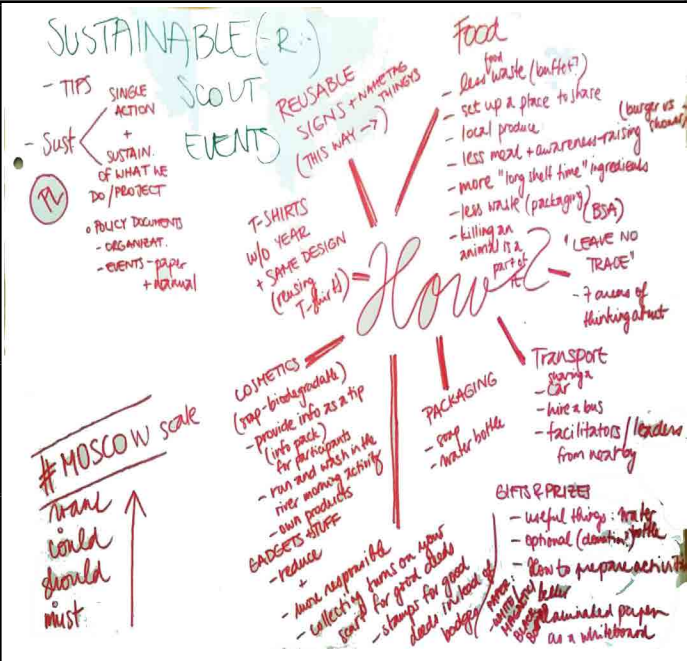 SUSTAINABLE(-R:-)
SCOUT
EVENTS
- TIPS
- Sust
SINGLE
ACTION
+
SUSTAIN.
OF WHAT WE
DO/PROJECT
° POLICY DOCUMENTS
- ORGANIZAT.
- EVENTS - paper
+ manual
REUSABLE
SIGNS + NAMETAG
THINGYS
(THIS WAY →)
Food
- less food waste (buffet?)
- set up a place to share
- local produce
- less meal + awareness-raising (burger vs shower)
- more "long shelf time" ingredients
- less waste (packaging)
- killing an
animal is a
part of
it
T-SHIRTS
W/O YEAR
+ SAME DESIGN
(reusing
T-shirts)
How?
(BSA)
"LEAVE NO
TRACE"
- 7 areas of
thinking about
Transport
- sharing a
car
- hire a bus
- facilitators/leaders
from nearby
PACKAGING
- soap
- water bottle
COSMETICS
(soap-biodegradable)
- provide info as a tip
(info pack)
for participants
- run and wash in the
river morning activity
- own products
GADGETS STUFF
- reduce
+
- more responsible
- collecting turns on your
scarf for good deeds
- stamps for good
deeds instead of
badges
GIFTS & PRIZES
- useful things: water
bottle
- optional (donation?)
- how to prepare activities
better
- laminated paper
as a whiteboard
PAPER:
WHITE/
MAGNETIC/
BLACK
BOARD
#MOSCOW scale
want
could
should
must